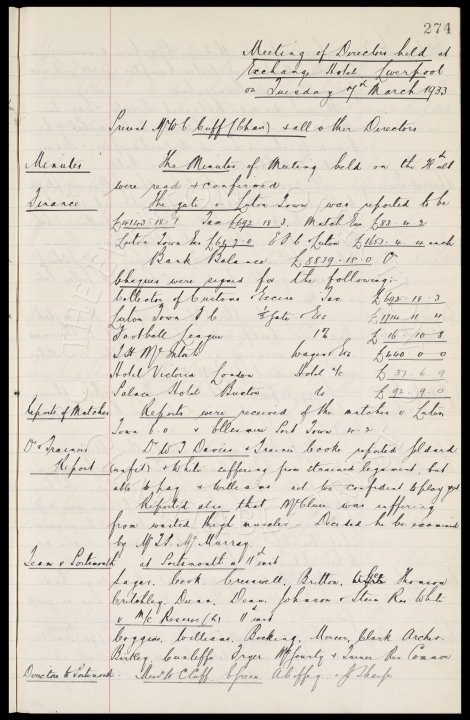 274
Meeting of Directors held at
Exchange Hotel Liverpool
on Tuesday 7th March 1933
Present Mr W C Cuff (Chair) & all other Directors
Minutes The Minutes of Meeting held on the ult
were read & confirmed
Finance The gate v Luton Town was reported to be
£4143.18.1 Tax £692.18.3. Match Exs £83.4.2
Luton Town Exs £64.7.0 E F C & Luton £1653. 4. 4 each
Bank Balance £5839.18.0
Cheques were signed for the following:
Collector of Customs & Excise Tax £692.18.3
Luton Town F C ½ gate & Exs £1714.11.4
Football League 1% £16.10.8
Wages & Exs £400.0.0
Hotel Victoria London Hotel a/c £37.6.9
Palace Hotel Buxton do £92.9.0
Reports of Matches Reports were received of the matches v Luton
Town 6.0 & Ellesmere Port Town 4.2
Dr & Trainers Dr W J Davies & Trainer Cooke reported Geldard
Report (unfit) & White suffering from strained ligament, but
able to play & Williams not too confident to play yet
Reported also that McClure was suffering
from wasted thigh muscles. Decided he be examined
by Mr McMurray
Team v Portsmouth at Portsmouth 11th inst
Sagar. Cook Cresswell. Britton. White Thomson
Critchley. Dunn. Dean. Johnson & Stein Res White
v M/c Reserve (h) 11th inst
Coggins. Williams. Bocking. Mercer. Clark Archer.
Birtley. Cunliffe. Fryer. McGourty & Turner Res Common
Directors to Portsmouth. Cuff, Green A Coffey & J Sharp